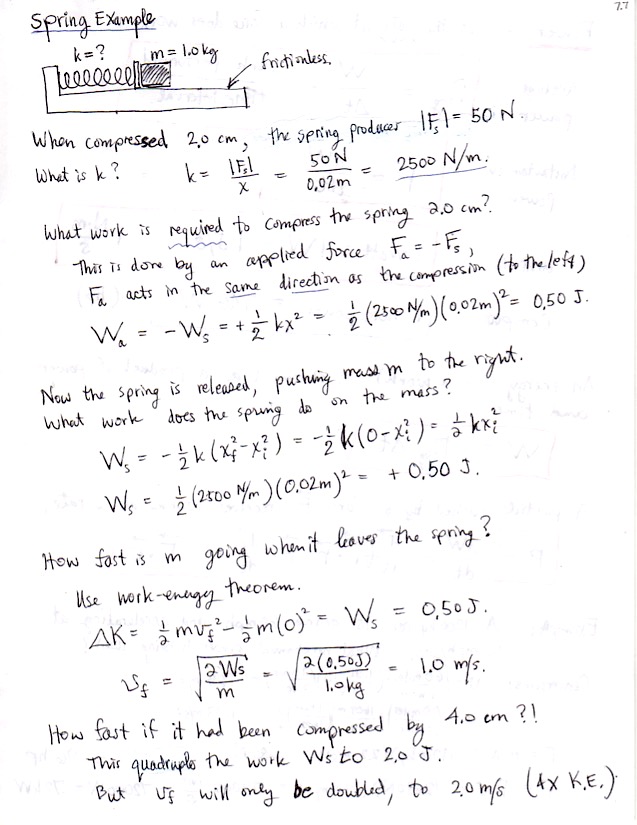 7.7
Spring Example
k=? m=1.0kg frictionless.
When compressed 2.0 cm, the spring produces |Fs| = 50 N.
What is k? k = |Fs|/x = 50N/0.02m = 2500 N/m.
What work is required to compress the spring 2.0 cm?
This is done by an applied force Fa = -Fs,
Fa acts in the same direction as the compression (to the left)
Wa = -Ws = +½ kx² = ½ (2500 N/m)(0.02m)² = 0.50 J.
Now the spring is released, pushing mass m to the right.
What work does the spring do on the mass?
Ws = -½ k (xf² - xi²) = -½ k (0 - xi²) = ½ kxi²
Ws = ½ (2500 N/m)(0.02m)² = + 0.50 J.
How fast is m going when it leaves the spring?
Use work-energy theorem.
ΔK = ½ mvf² - ½ m(0)² = Ws = 0.50 J.
vf = √(2Ws/m) = √(2(0.50J)/1.0kg) = 1.0 m/s.
How fast if it had been compressed by 4.0 cm?!
This quadruples the work Ws to 2.0 J.
But vf will only be doubled, to 2.0 m/s (4x K.E.)